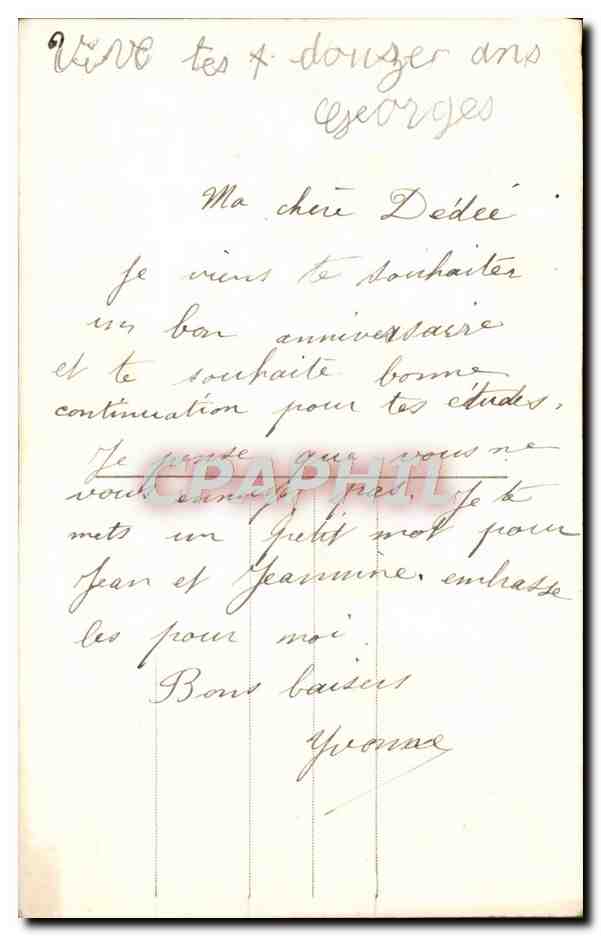 Vive tes + douzer ans
Georges
Ma chère Dédée
Je viens te souhaiter
un bon anniversaire
et te souhaite bonne
continuation pour tes études.
Je pense que vous ne
CPAPHIL
vous ennuyer pas. Je te
mets un petit mot pour
Jean et Jeannine. embrasse
les pour moi.
Bons baisers
Yvonne